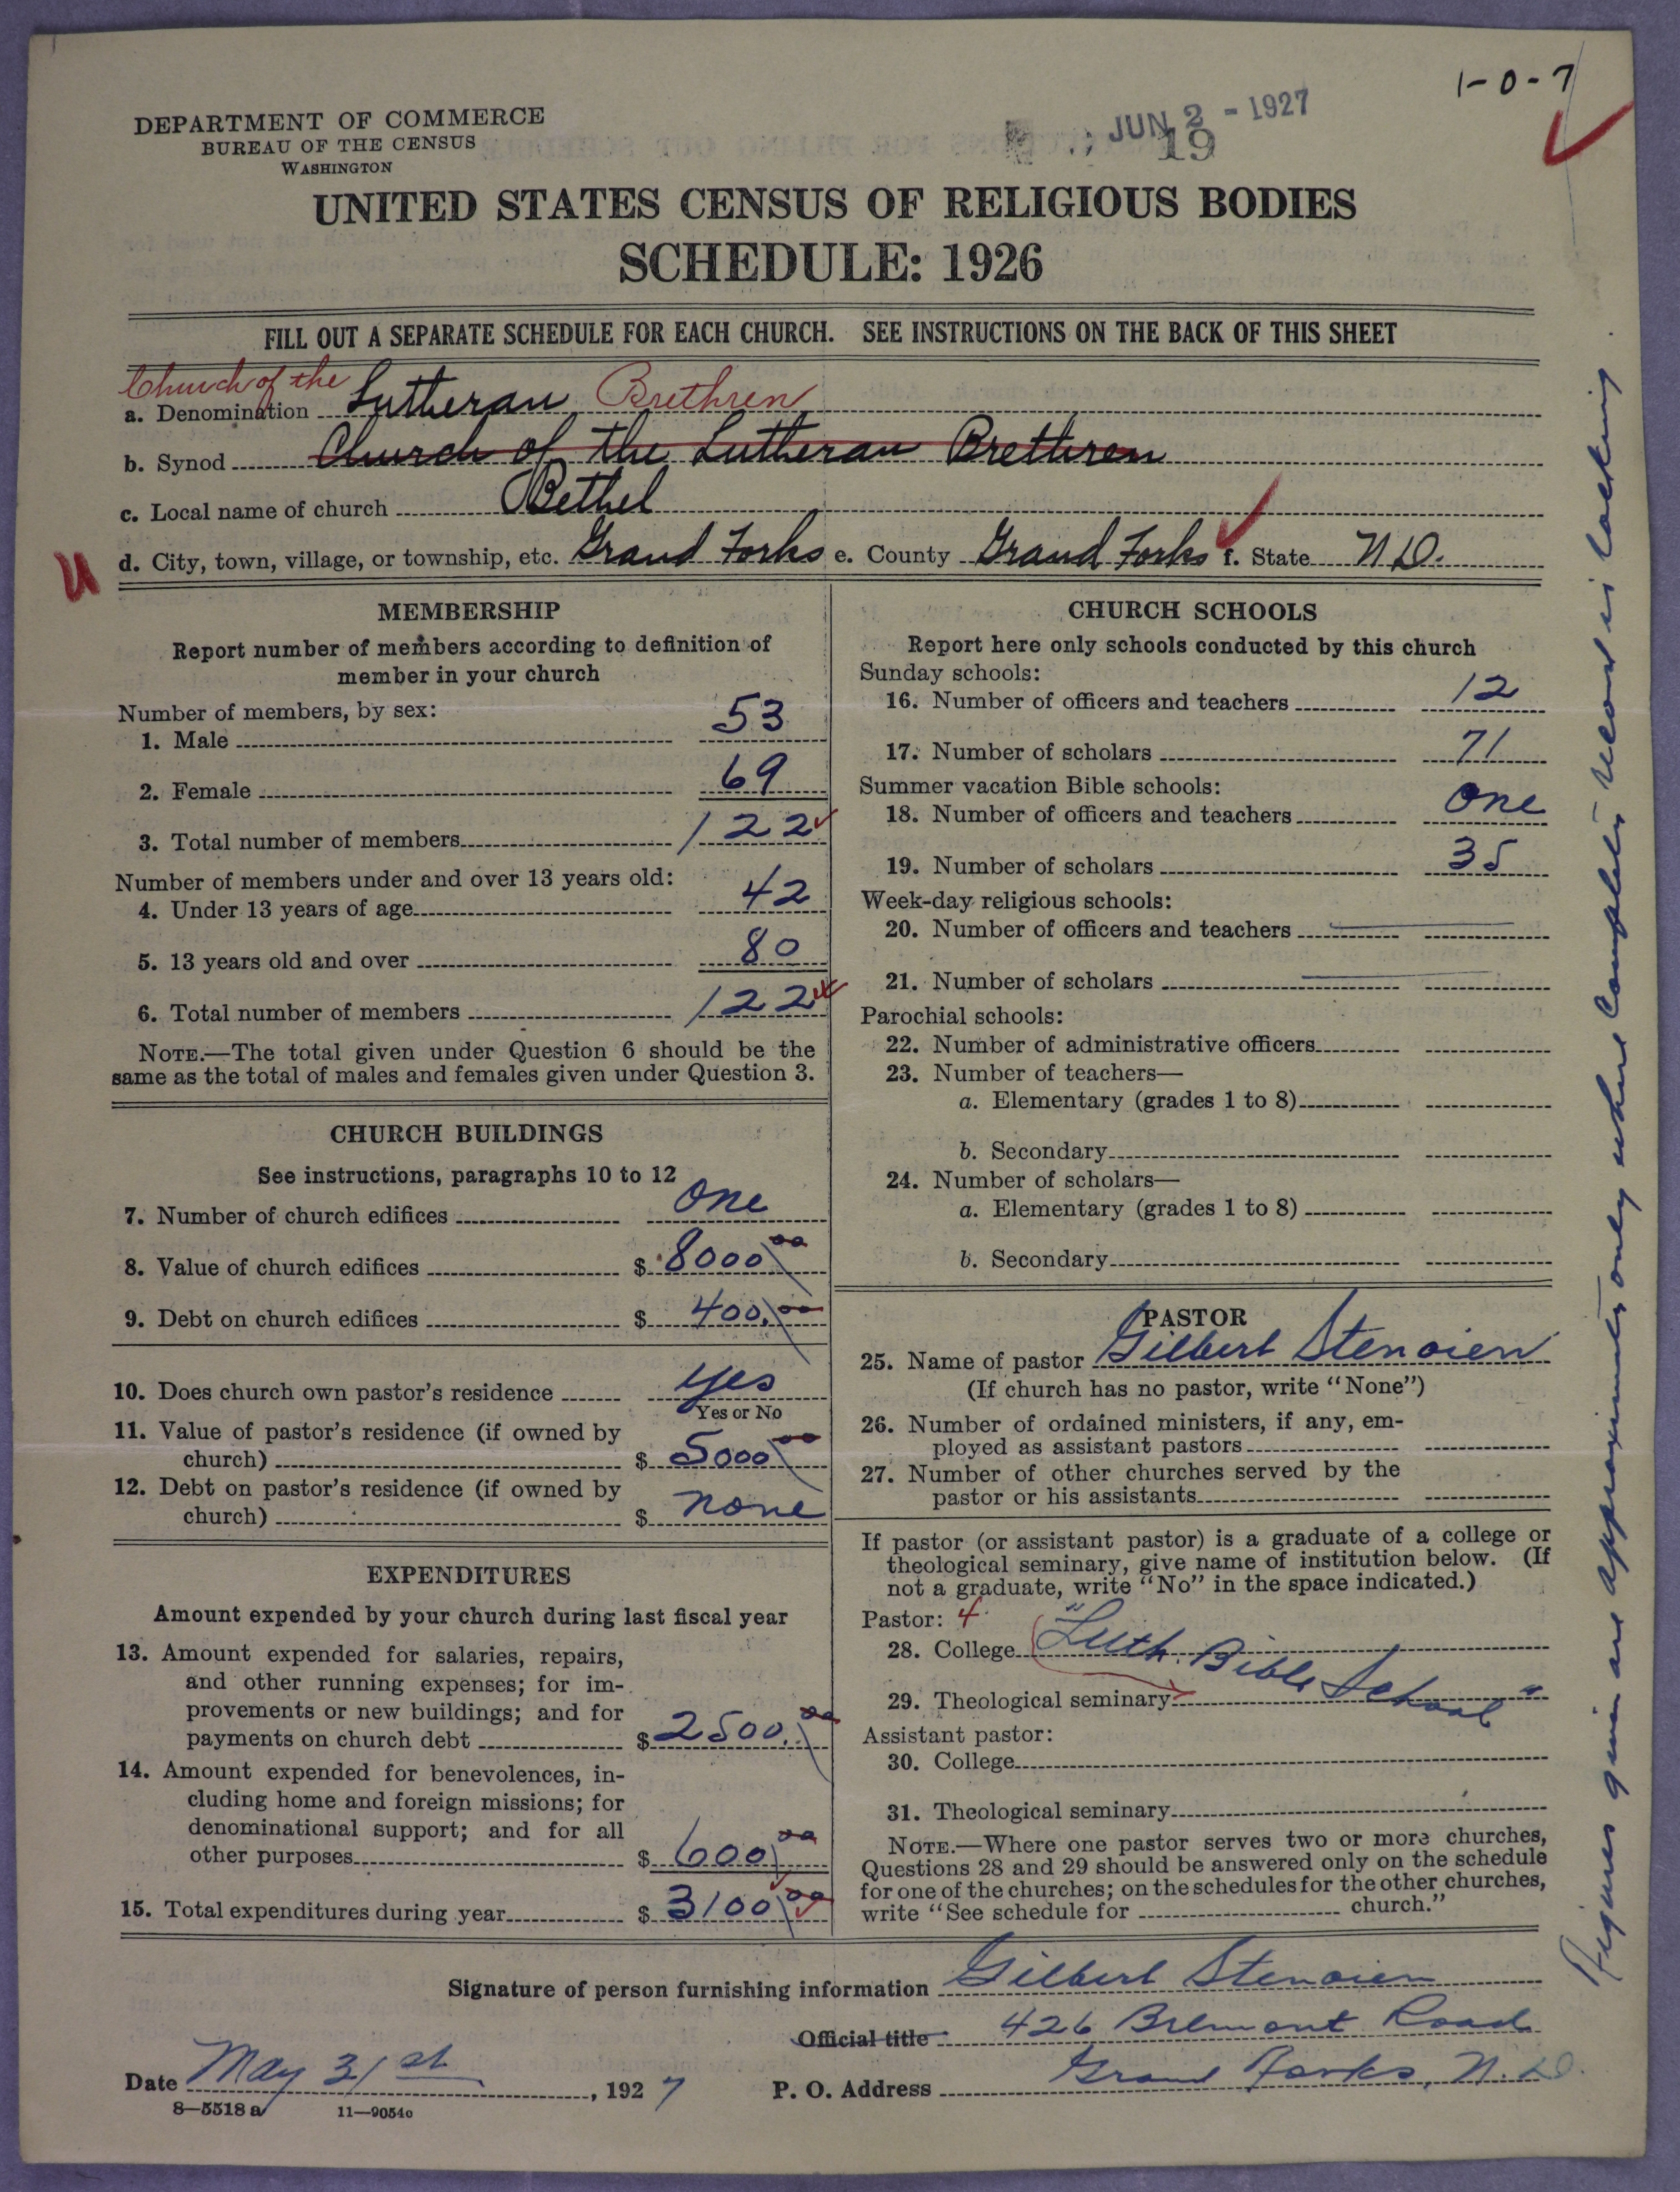 1-0-7
DEPARTMENT OF COMMERCE
BUREAU OF THE CENSUS
WASHINGTON
JUN 2 - 1927
19
UNITED STATES CENSUS OF RELIGIOUS BODIES
SCHEDULE: 1926
FILL OUT A SEPARATE SCHEDULE FOR EACH CHURCH. SEE INSTRUCTIONS ON THE BACK OF THIS SHEET
Church of the
a. Denomination Lutheran Brethren
b. Synod Church of the Lutheran Brethren
c. Local name of church Bethel
d. City, town, village, or township, etc. Grand Forks e. County Grand Forks f. State N D.
U
MEMBERSHIP
Report number of members according to definition of
member in your church
Number of members, by sex:
1. Male 53
2. Female 69
3. Total number of members 122
Number of members under and over 13 years old:
4. Under 13 years of age 42
5. 13 years old and over 80
6. Total number of members 122
NOTE.—The total given under Question 6 should be the
same as the total of males and females given under Question 3.
CHURCH BUILDINGS
See instructions, paragraphs 10 to 12
7. Number of church edifices one
8. Value of church edifices $ 8000 00
9. Debt on church edifices $ 400.00
10. Does church own pastor's residence yes
Yes or No
11. Value of pastor's residence (if owned by
church) $ 5000 00
12. Debt on pastor's residence (if owned by
church) $ none
EXPENDITURES
Amount expended by your church during last fiscal year
13. Amount expended for salaries, repairs,
and other running expenses; for im-
provements or new buildings; and for
payments on church debt $ 2500.00
14. Amount expended for benevolences, in-
cluding home and foreign missions; for
denominational support; and for all
other purposes $ 600 00
15. Total expenditures during year $ 3100 00
CHURCH SCHOOLS
Report here only schools conducted by this church
Sunday schools:
16. Number of officers and teachers 12
17. Number of scholars 71
Summer vacation Bible schools:
18. Number of officers and teachers one
19. Number of scholars 35
Week-day religious schools:
20. Number of officers and teachers
21. Number of scholars
Parochial schools:
22. Number of administrative officers
23. Number of teachers—
a. Elementary (grades 1 to 8)
b. Secondary
24. Number of scholars—
a. Elementary (grades 1 to 8)
b. Secondary
PASTOR
25. Name of pastor Gilbert Stenoien
(If church has no pastor, write "None")
26. Number of ordained ministers, if any, em-
ployed as assistant pastors
27. Number of other churches served by the
pastor or his assistants
If pastor (or assistant pastor) is a graduate of a college or
theological seminary, give name of institution below. (If
not a graduate, write "No" in the space indicated.)
Pastor: 4
28. College "Luth. Bible School"
29. Theological seminary
Assistant pastor:
30. College
31. Theological seminary
NOTE.—Where one pastor serves two or more churches,
Questions 28 and 29 should be answered only on the schedule
for one of the churches; on the schedules for the other churches,
write "See schedule for church."
Signature of person furnishing information Gilbert Stenoien
Official title 426 Belmont Road
Date May 31st, 1927 P. O. Address Grand Forks, N. D.
8—5518 a 11—9054c
Figures given are approximately only where complete record is lacking.